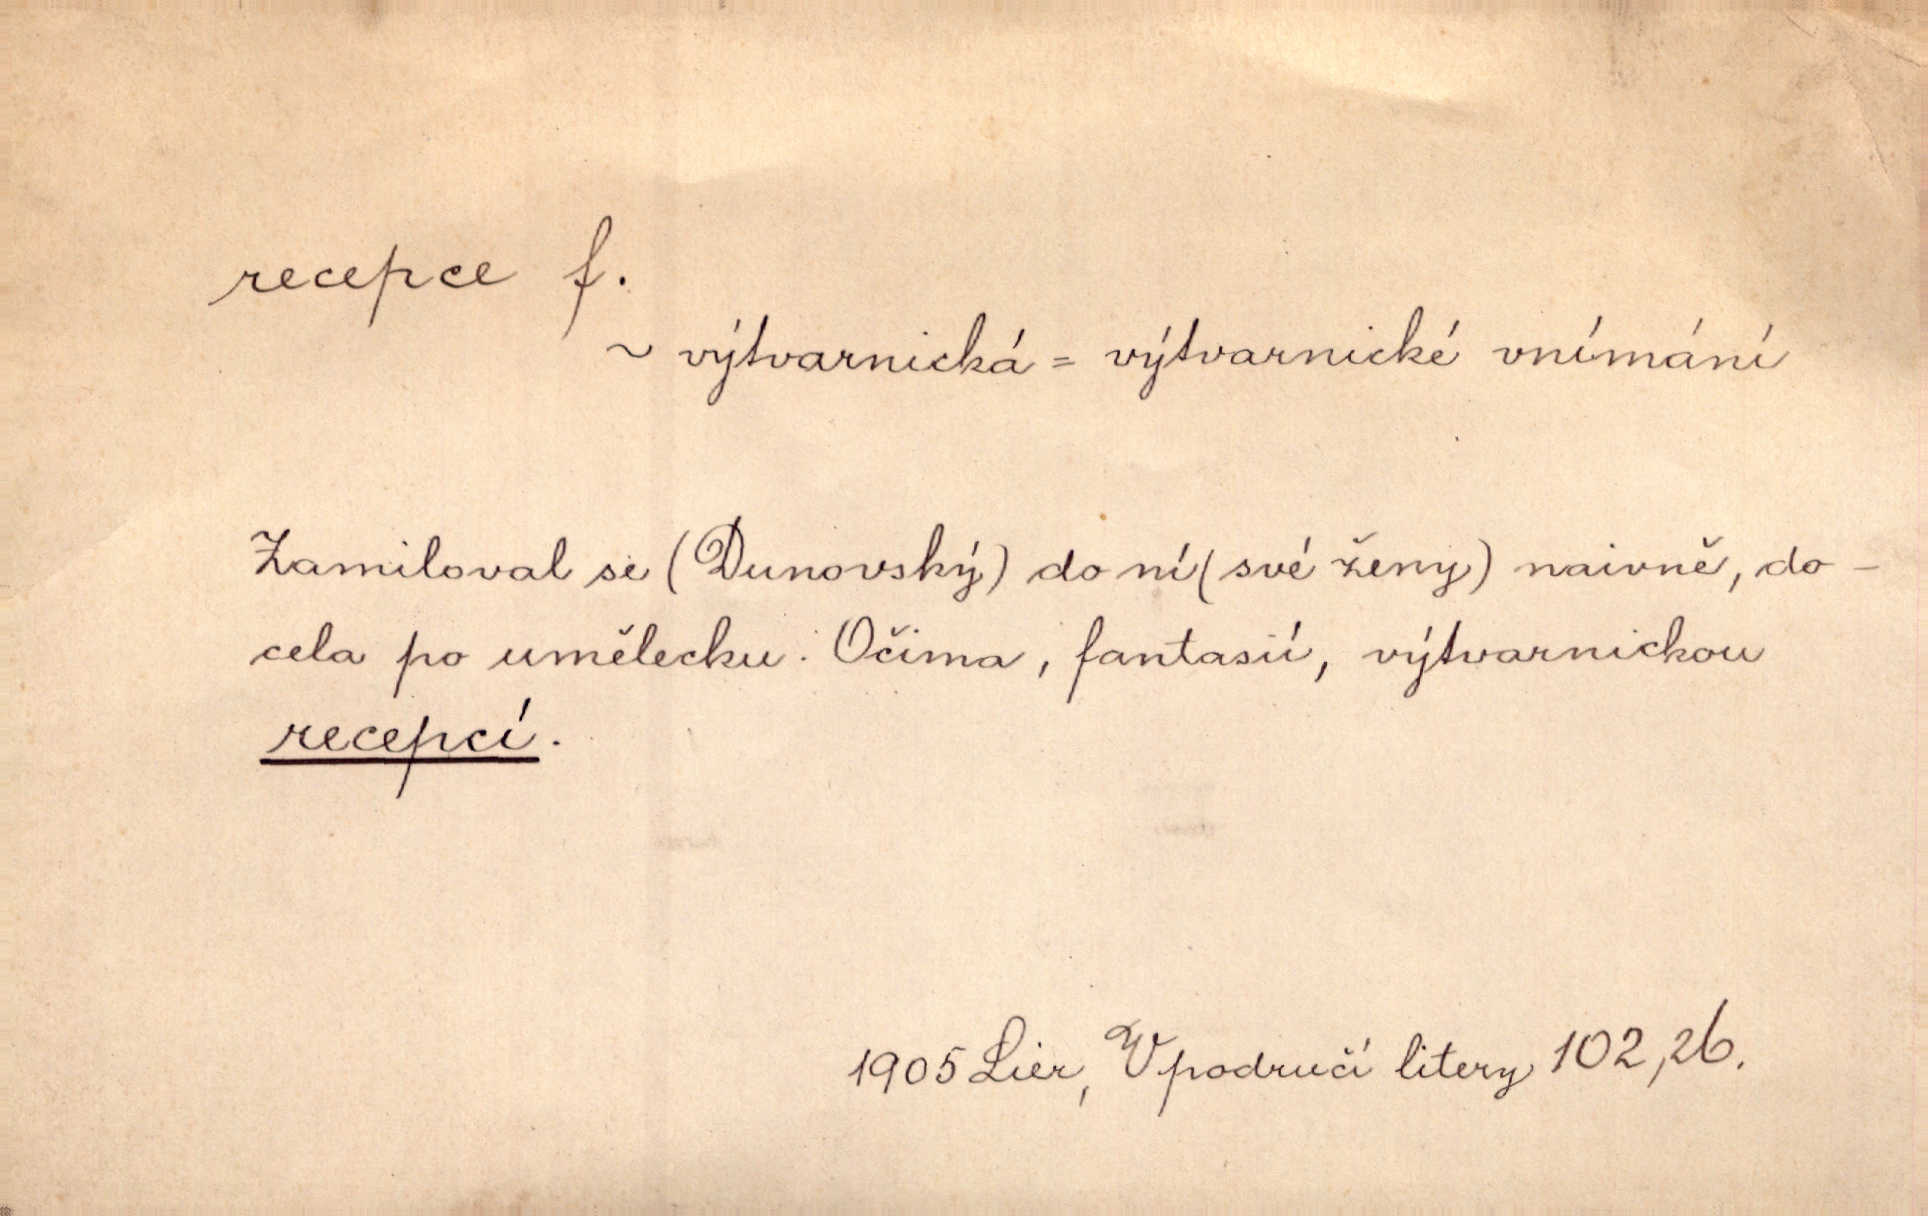 recepce f.
~ výtvarnická = výtvarnické vnímání
Zamiloval se (Dunovský) do ní (své ženy) naivně, do-
cela po umělecku. Očima, fantasií, výtvarnickou
recepcí.
1905 Lier, V područí litery 102,26.